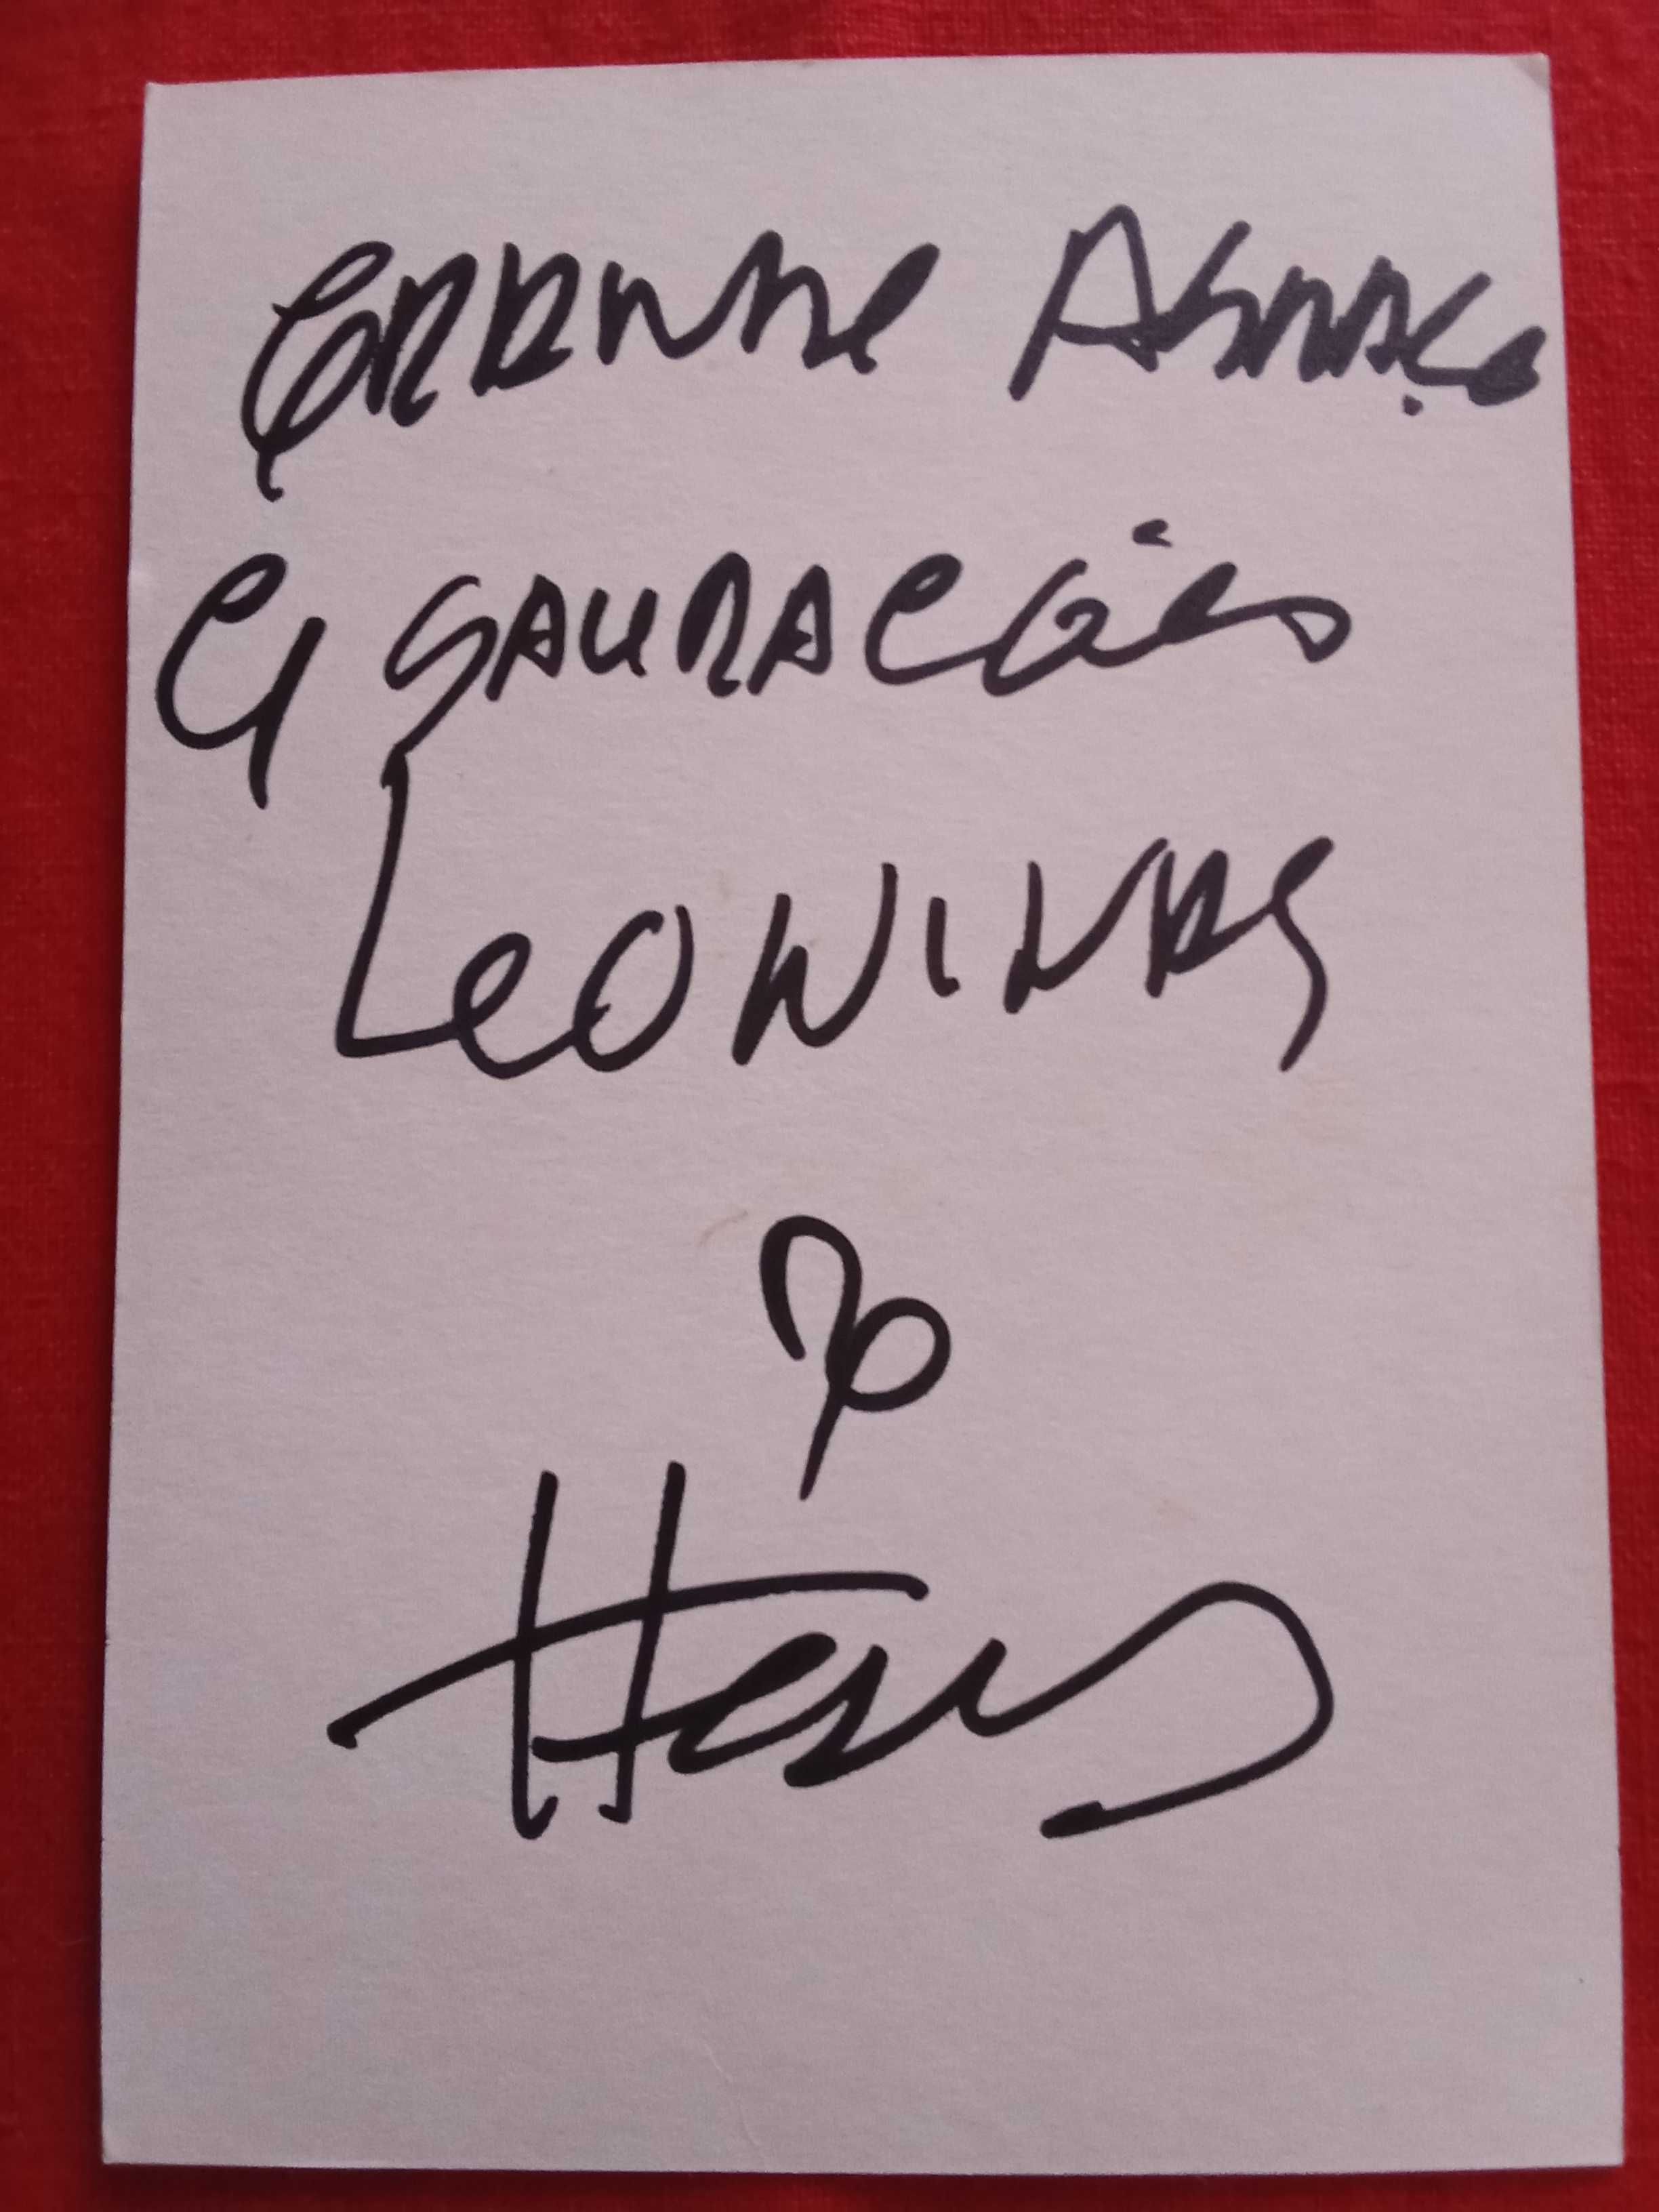 GRANDE ABRAÇO
e SAUDAÇÕES
LEONINAS
do